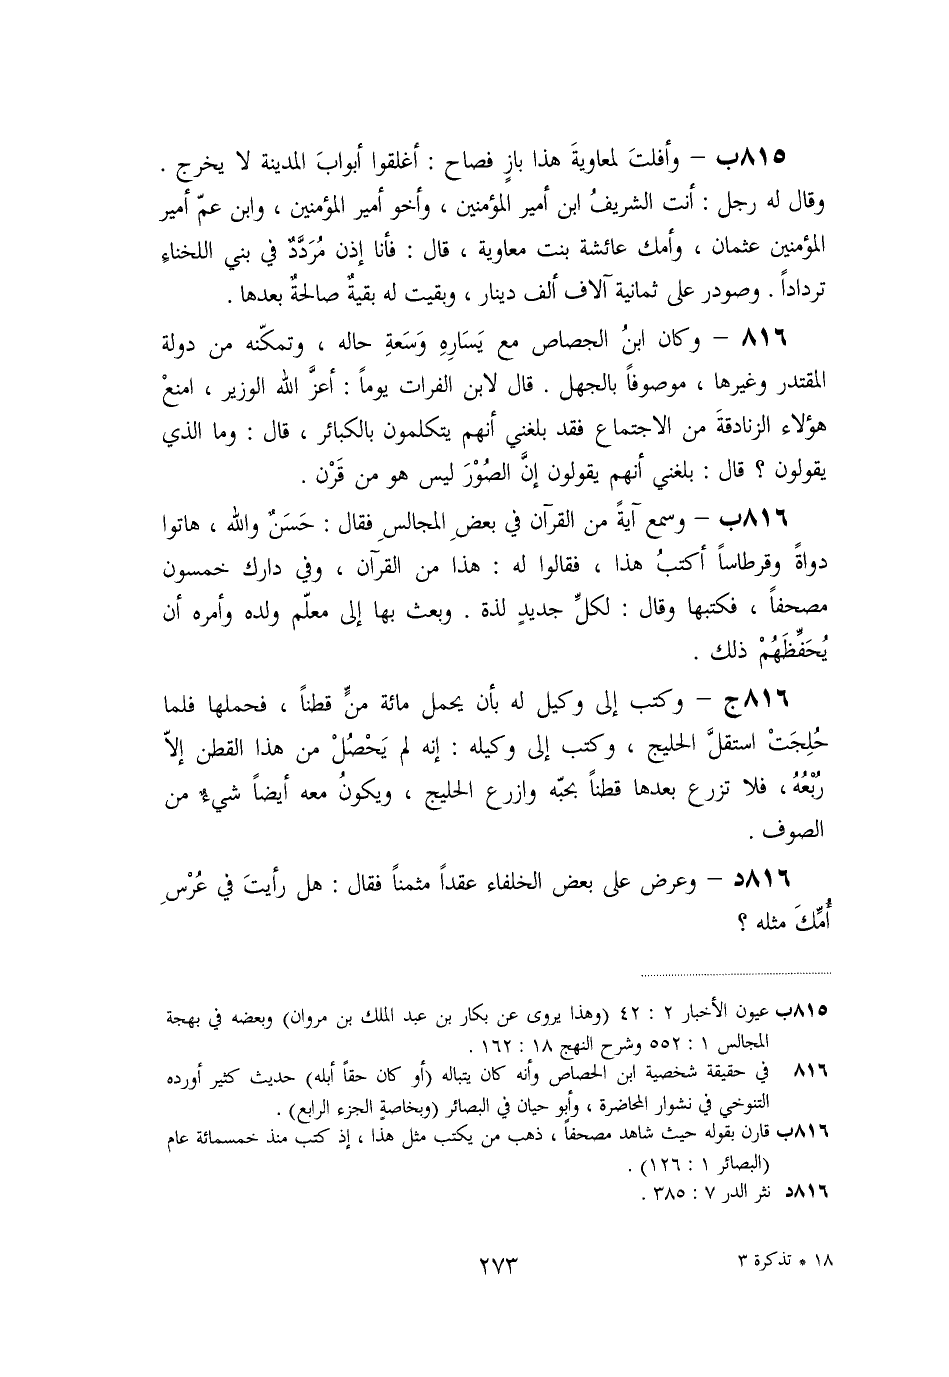 ٨١٥ب – وأفلتَ لمعاويةَ هذا بازٍ فصاح : أغلقوا أبوابَ المدينة لا يخرج .
وقال له رجل : أنت الشريفُ ابن أمير المؤمنين ، وأخو أمير المؤمنين ، وابن عمّ أمير
المؤمنين عثمان ، وأمك عائشة بنت معاوية ، قال : فأنا إذن مُرَدَّدٌ في بني اللخناءِ
ترداداً . وصودر على ثمانية آلاف ألف دينار ، وبقيت له بقيةٌ صالحةٌ بعدها .
٨١٦ – وكان ابنُ الجصاص مع يَسَارِهِ وَسَعةِ حاله ، وتمكّنه من دولة
المقتدر وغيرها ، موصوفاً بالجهل . قال لابن الفرات يوماً : أعزَّ الله الوزير ، امنعْ
هؤلاء الزنادقةَ من الاجتماع فقد بلغني أنهم يتكلمون بالكبائر ، قال : وما الذي
يقولون ؟ قال : بلغني أنهم يقولون إنَّ الصُوْرَ ليس هو من قَرْن .
٨١٦ب – وسمع آيةً من القرآن في بعضِ المجالسِ فقال : حَسَنٌ والله ، هاتوا
دواةً وقرطاساً أكتبُ هذا ، فقالوا له : هذا من القرآن ، وفي دارك خمسون
مصحفاً ، فكتبها وقال : لكلِّ جديدٍ لذة . وبعث بها إلى معلّم ولده وأمره أن
يُحَفِّظَهُمْ ذلك .
٨١٦ج – وكتب إلى وكيل له بأن يحمل مائة منٍّ قطناً ، فحملها فلما
حُلِجَتْ استقلَّ الحليج ، وكتب إلى وكيله : إنه لم يَحْصُلْ من هذا القطن إلاّ
رُبْعُهُ ، فلا تزرع بعدها قطناً بحبّه وازرع الحليج ، ويكونُ معه أيضاً شيءٌ من
الصوف .
٨١٦د – وعرض على بعض الخلفاء عقداً مثمناً فقال : هل رأيتَ في عُرْسِ
أُمِّكَ مثله ؟
٨١٥ب عيون الأخبار ٢ : ٤٢ (وهذا يروى عن بكار بن عبد الملك بن مروان) وبعضه في بهجة
المجالس ١ : ٥٥٢ وشرح النهج ١٨ : ١٦٢ .
٨١٦ في حقيقة شخصية ابن الجصاص وأنه كان يتباله (أو كان حقاً أبله) حديث كثير أورده
التنوخي في نشوار المحاضرة ، وأبو حيان في البصائر (وبخاصةٍ الجزء الرابع) .
٨١٦ب قارن بقوله حيث شاهد مصحفاً ، ذهب من يكتب مثل هذا ، إذ كتب منذ خمسمائة عام
(البصائر ١ : ١٢٦) .
٨١٦د نثر الدر ٧ : ٣٨٥ .
١٨ * تذكرة ٣
٢٧٣